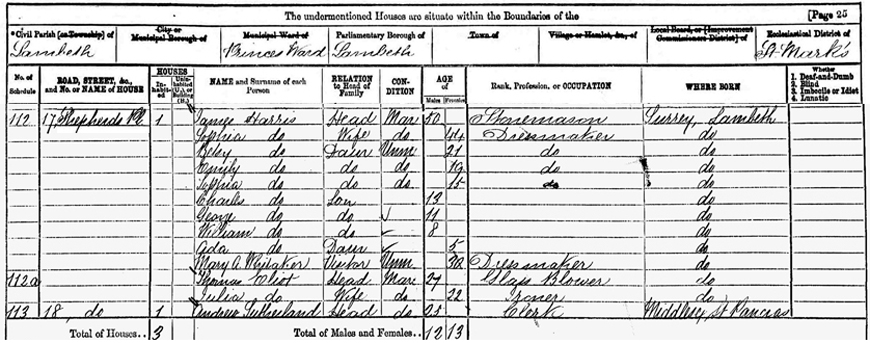 The undermentioned Houses are situate within the Boundaries of the [Page 25
*Civil Parish [or Township] of City or Municipal Borough of Municipal Ward of Parliamentary Borough of Town of Village or Hamlet, &c., of Local Board, or [Improvement Commissioners District] of Ecclesiastical District of
Lambeth Princes Ward Lambeth St Mark's
No. of Schedule ROAD, STREET, &c., and No. or NAME of HOUSE HOUSES Inhabited Uninhabited (U.), or Building (B.) NAME and Surname of each Person RELATION to Head of Family CONDITION AGE of Males Females Rank, Profession, or OCCUPATION WHERE BORN Whether 1. Deaf-and-Dumb 2. Blind 3. Imbecile or Idiot 4. Lunatic
112 17 Shepherds Pl 1 James Harris Head Mar 50 Stonemason Surrey, Lambeth
Sophia do Wife do 44 Dressmaker do
Betsy do Daur Unm 21 do do
Emily do do do 19 do do
Sophia do do do 15 do do
Charles do Son 13 do
George do do 11 do
William do do 8 do
Ada do Daur 5 do
Mary A. Whitaker Visitor Unm 30 Dressmaker do
112a Thomas Eliot Head Mar 27 Glass Blower do
Julia do Wife do 22 Ironer do
113 18, do 1 Andrew Sutherland Head do 25 Clerk Middlesex, St Pancras
Total of Houses.. 3 Total of Males and Females.. 12 13